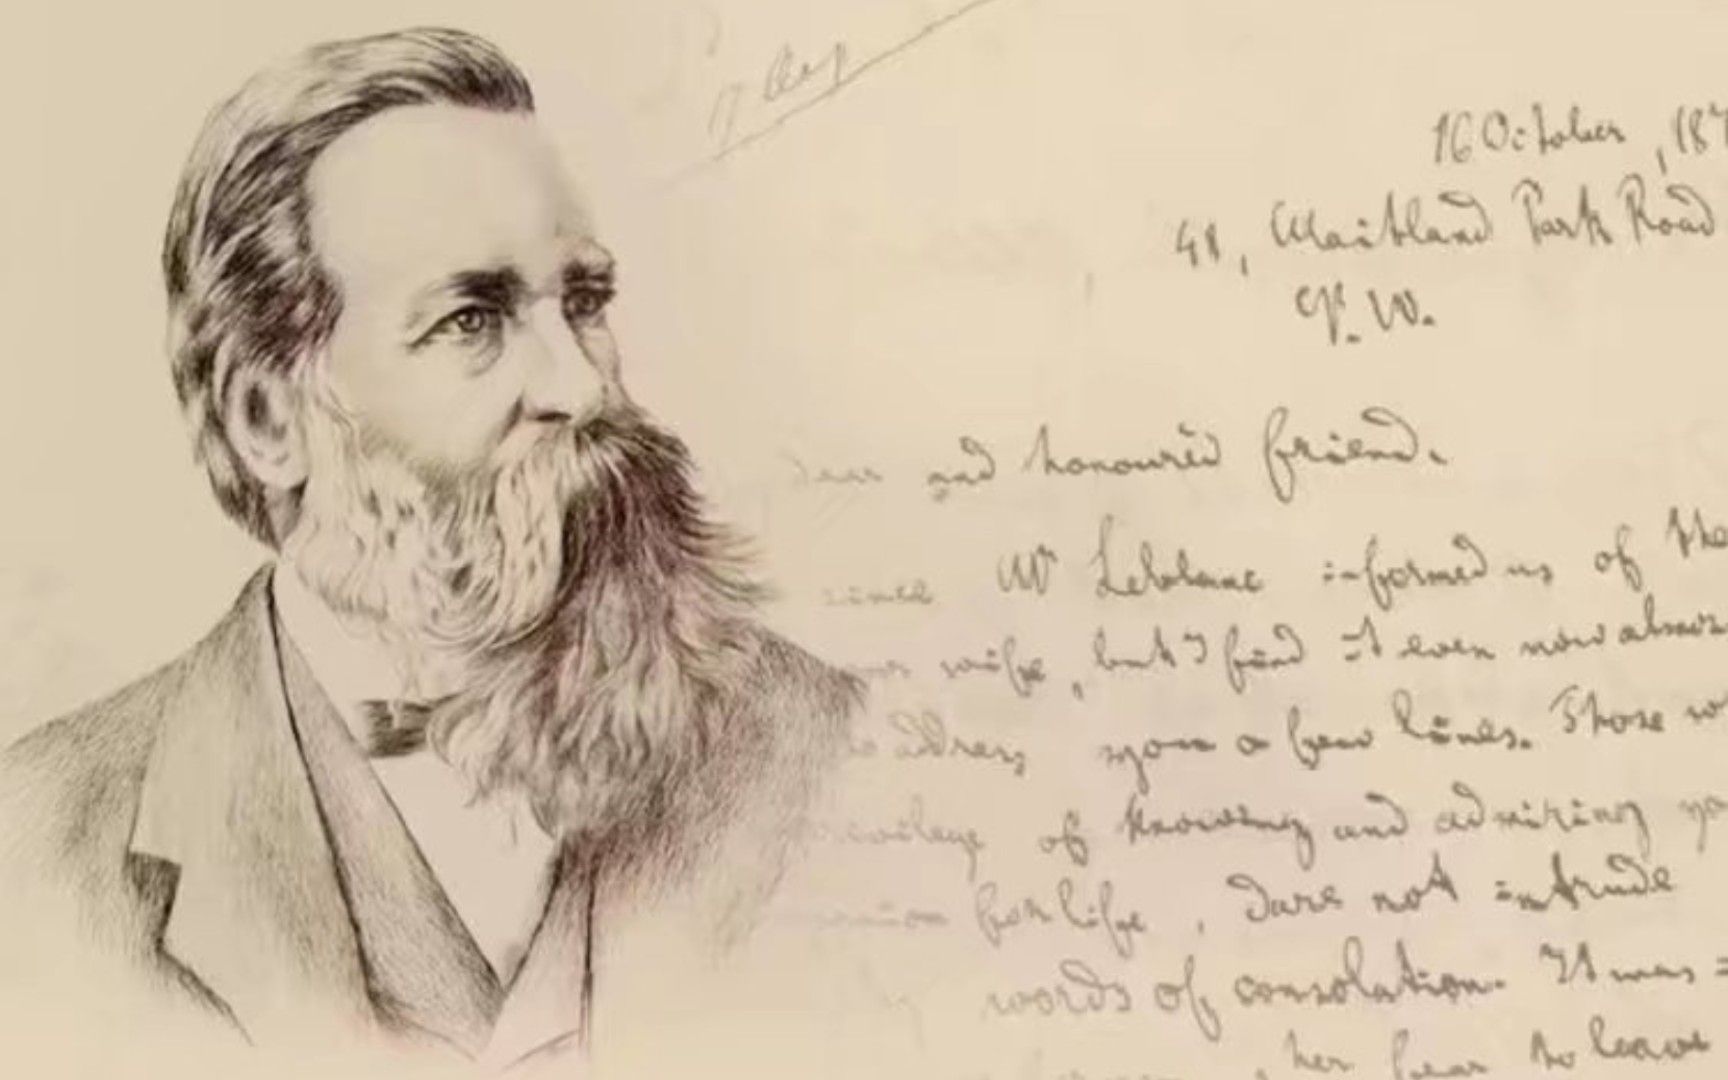 16 October, 187
41, Maitland Park Road
N. W.
Dear and honoured friend.
since Mr Leblanc informed us of the
wife, but I find it even now almost
to address you a few lines. Those w
privilege of knowing and admiring yo
for life, dare not intrude
words of consolation. It was
, her fear to leave